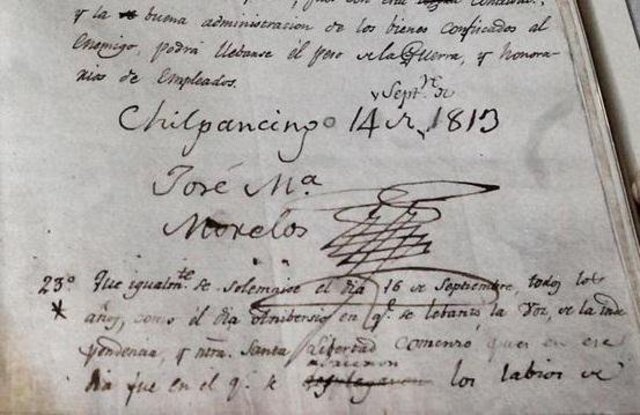 y la buena administracion de los bienes confiscados al
Enemigo, podra llebarse el peso de la Guerra, y honora-
rios de Empleados.
Chilpancingo 14 de Septre. de 1813
José Ma.
Morelos
23o Que igualmte. se solemnise el dia 16 de Septiembre, todos los
años, como el dia Anibersario en q. se lebantó la Voz, de la Inde
pendencia, y ntra. Santa Libertad comenzó, pues en ese
dia fue en el q. se desplegaron los labios de